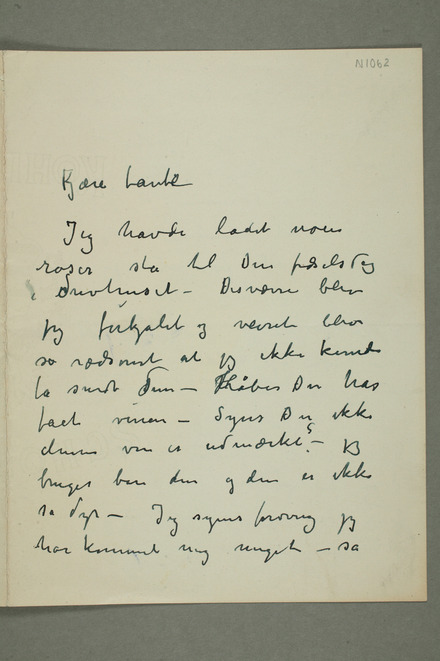 N1062
Kjære tante
Jeg havde ladet noen
roser sta til Din fødselsdag
i Drivhuset – Desværre blev
jeg forkjølet og veiret blev
så rædsomt at jeg ikke kunde
fa sendt dem – Håber Du har
faet vinen – Synes Du ikke
denne vin er udmærket? – Jeg
bruger bare den og den er ikke
sa dyr – Jeg synes forøvrig jeg
har kommet mig meget – sa